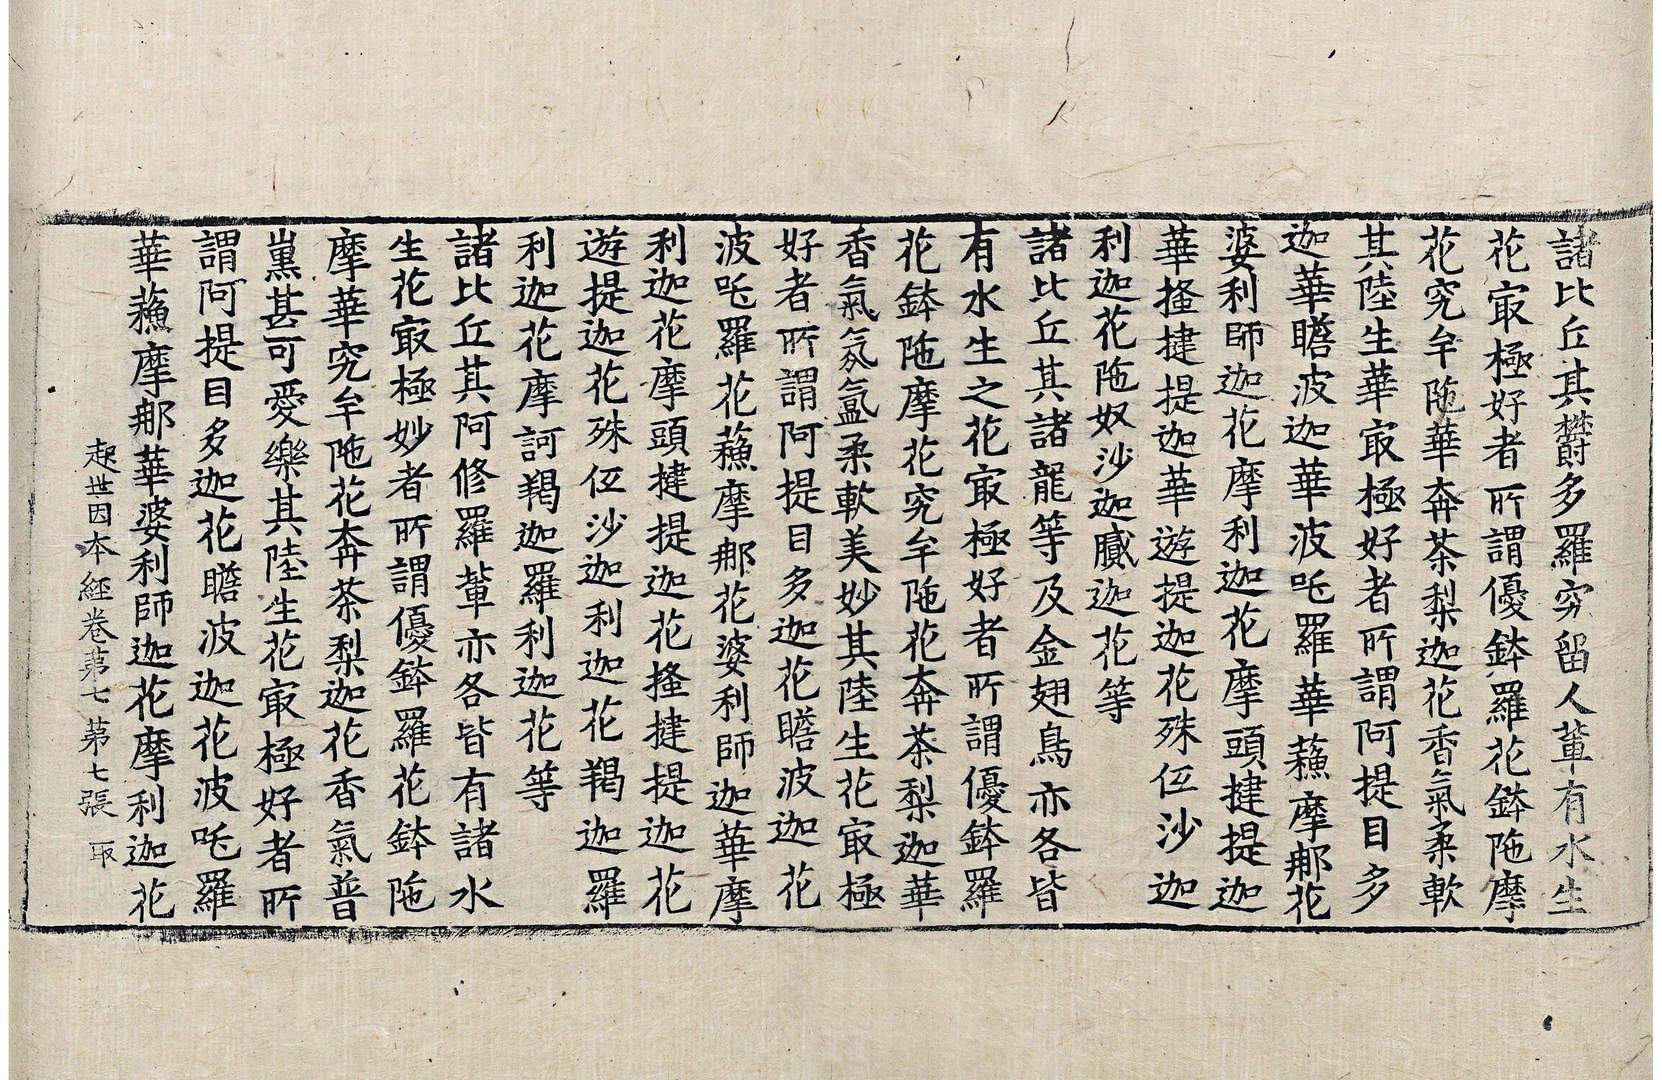 諸比丘其欝多羅究留人軰有水生
花㝡極好者所謂優鉢羅花鉢陁摩
花究牟陁華奔茶梨迦花香氣柔軟
其陸生華㝡極好者所謂阿提目多
迦華瞻波迦華波吒羅華蘓摩那花
婆利師迦花摩利迦花摩頭揵提迦
華搔揵提迦華遊提迦花殊伍沙迦
利迦花陁奴沙迦膩迦花等
諸比丘其諸龍等及金翅鳥亦各皆
有水生之花㝡極好者所謂優鉢羅
花鉢陁摩花究牟陁花奔茶梨迦華
香氣氛氳柔軟美妙其陸生花㝡極
好者所謂阿提目多迦花瞻波迦花
波吒羅花蘓摩那花婆利師迦華摩
利迦花摩頭揵提迦花搔揵提迦花
遊提迦花殊伍沙迦利迦花羯迦羅
利迦花摩訶羯迦羅利迦花等
諸比丘其阿修羅軰亦各皆有諸水
生花㝡極妙者所謂優鉢羅花鉢陁
摩華究牟陁花奔茶梨迦花香氣普
熏甚可愛樂其陸生花㝡極好者所
謂阿提目多迦花瞻波迦花波吒羅
華蘓摩那華婆利師迦花摩利迦花
起世因本經卷第七 第七張 取